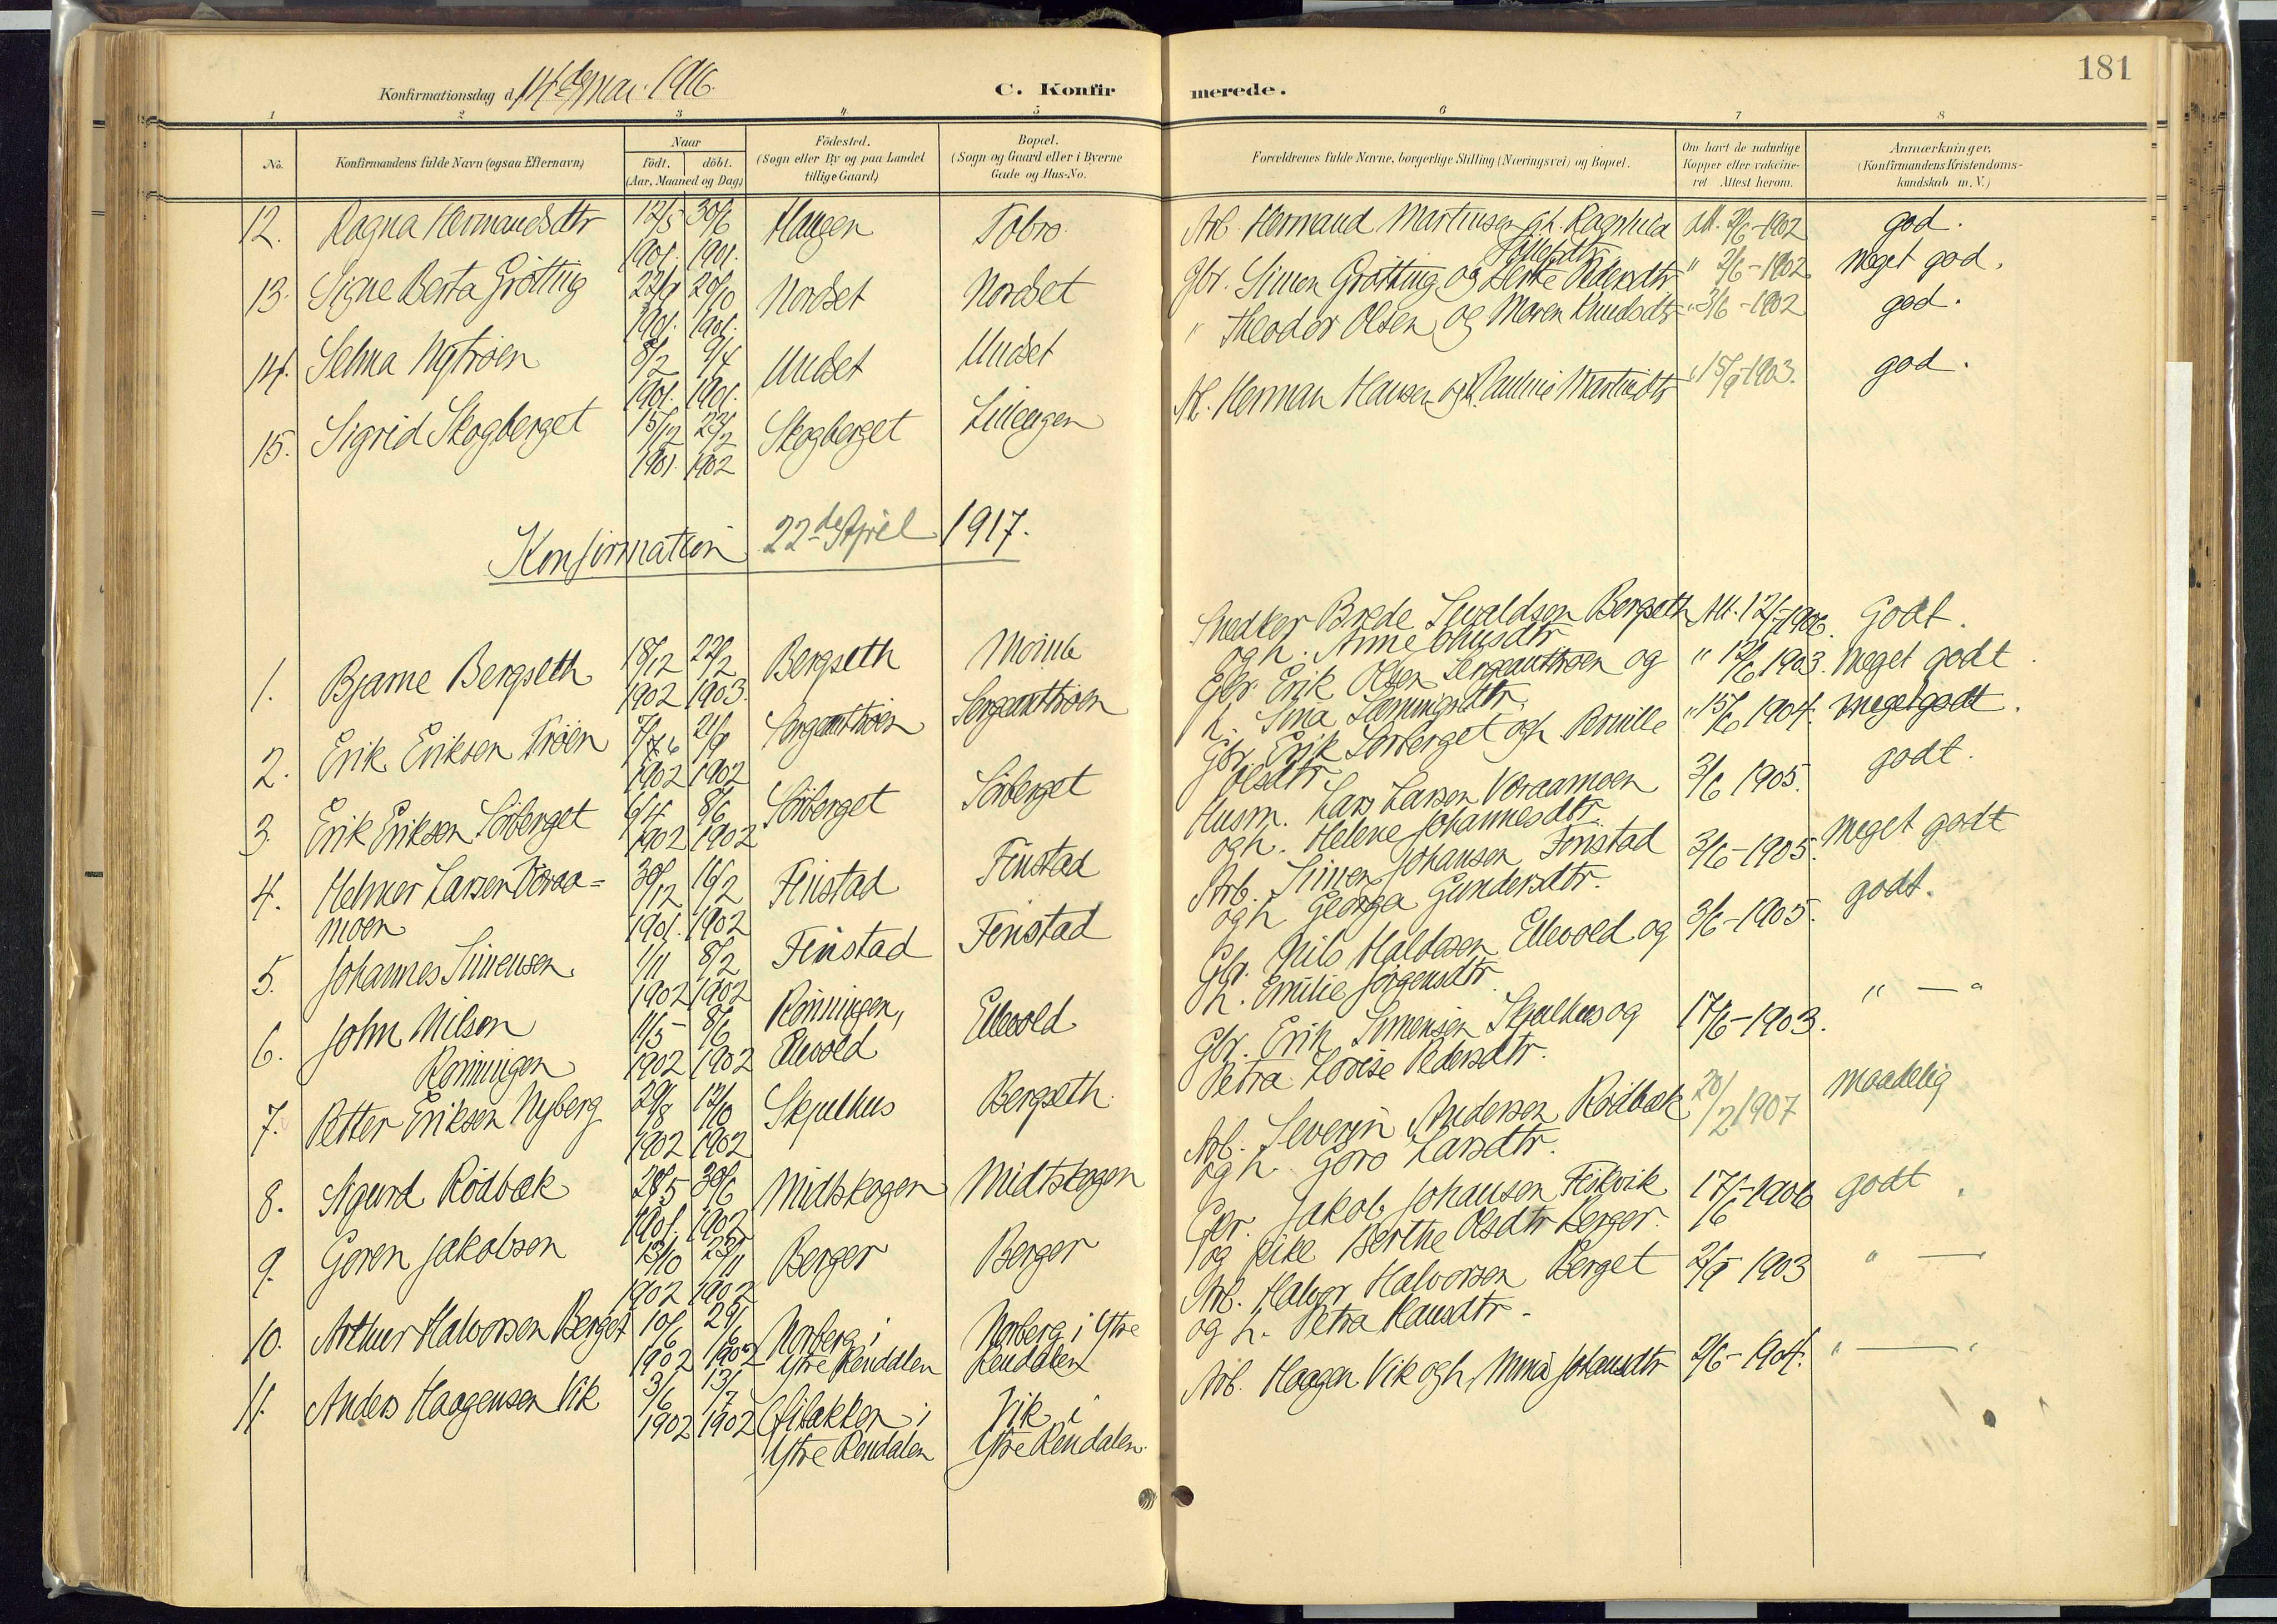 181
Konfirmationsdag d. 14de Mai 1916.
C. Konfirmerede.
1 2 3 4 5 6 7 8
No.
Konfirmandens fulde Navn (ogsaa Efternavn)
Naar
födt. döbt.
(Aar, Maaned og Dag)
Födested.
(Sogn eller By og paa Landet
tillige Gaard)
Bopæl.
(Sogn og Gaard eller i Byerne
Gade og Hus-No.
Forældrenes fulde Navne, borgerlige Stilling (Næringsvei) og Bopæl.
Om havt de naturlige
Kopper eller vakcine-
ret Attest herom.
Anmærkninger,
(Konfirmandens Kristendoms-
kundskab m. V.)
12. Ragna Hermandsdtr 12/5 1901. 30/6 1901. Haugen Tobro Arb. Hermand Martinsen og h. Ragnhild Att. 1902 god.
13. Signe Berta Grötting 22/9 1901. 20/10 1901. Nordset Nordset Gbr. Simen Grötting og Berte Pedersdtr " 2/6-1902 Meget god.
14. Selma Nytröen 8/2 1901. 9/4 1901. Undset Undset " Theodor Olsen og Maren Knudsdtr " 3/6-1902 god.
15. Sigrid Skogberget 15/12 1901. 23/2 1902 Skogberget Lilleengen Arb. Herman Hansen og h. Pauline Martinsdtr " 15/9 1903. god.
Konfirmation 22de April 1917.
1. Bjarne Bergseth 18/12 1902 22/2 1903. Bergseth Snedker Brede Sevaldsen Bergseth
og h. Anne Att. 1906. Godt.
2. Erik Eriksen Tröen 1902 21/9 1902 Sergeanttröen Sergeanttröen Gbr. Erik Olsen Sergeanttröen og
h. Sina " 12/6 1903. Meget godt.
3. Erik Eriksen Sörberget 6/4 1902 8/6 1902 Sörberget Sörberget Gbr. Erik Sörberget og h. Pernille
Olsdtr. " 15/6 1904. meget godt.
4. Helmer Larsen Voraa=
moen 30/12 1901. 16/2 1902 Finstad Finstad Husm. Lars Larsen Voraamoen
og h. Helene Johannesdtr. 3/6 1905. godt.
5. Johannes Simensen 1/11 1902 8/2 1902 Finstad Finstad Arb. Simen Johansen Finstad
og h Georga Gundersdtr. 3/6-1905. Meget godt
6. John Nilsen
Rönningen 11/5 1902 8/6 1902 Rönningen,
Ellevold Ellevold Gbr. Nils Haldosen Ellevold og
h. Emilie Jörgensdtr. 3/6-1905. godt.
7. Petter Eriksen Nyberg 29/8 1902 12/10 1902 Skjulhus Bergseth. Gbr. Erik Simensen Skjulhus og
Petra Lovise Pedersdtr. 17/6-1903. " — "
8. Sigurd Rödbæk 28/5 1901. 30/6 1902 Midtskogen Midtskogen Arb. Severin Andersen Rödbæk
og h. Goro Larsdtr. 20/2 1907 Maadelig
9. Goren Jakobsen 13/10 1902 23/11 1902 Berger Berger Gbr. Jakob Johansen Fiskvik
og pike Berthe Olsdtr Berger. 17/6-1906 godt.
10. Arthur Halvorsen Berget 10/6 1902 29/6 1902 Norberg i
Ytre Rendalen Norberg i Ytre
Rendalen Arb. Halvor Halvorsen Berget
og h. Petra Hansdtr. 2/9 1903 " —
11. Anders Haagensen Vik 3/6 1902 13/7 1902 i
Ytre Rendalen Vik i
Ytre Rendalen. Arb. Haagen Vik og h. Mina Johansdtr 2/6-1904. " — "